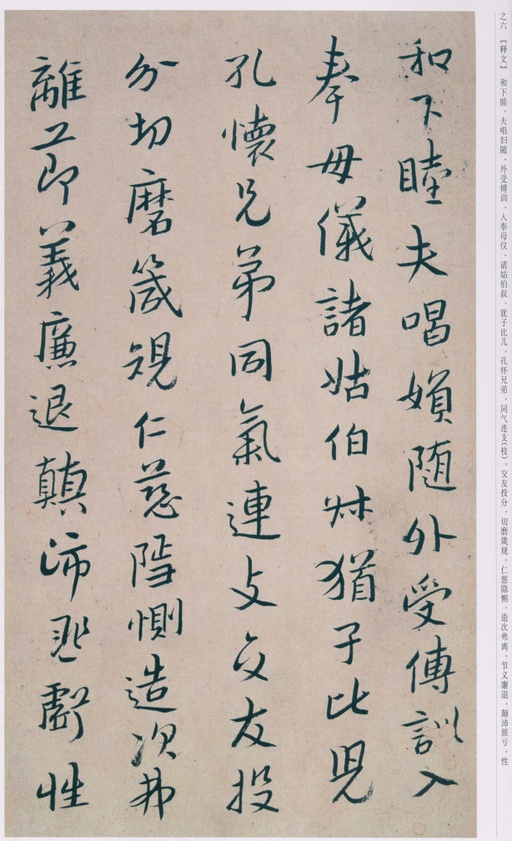 之六 【释文】 和下睦，夫唱妇随，外受傅训，入奉母仪，诸姑伯叔，犹子比儿。孔怀兄弟，同气连支（枝），交友投分，切磨箴规。仁慈隐恻，造次弗离，节义廉退，颠沛匪亏。性
和下睦夫唱婦随外受傅訓入
奉母儀諸姑伯叔猶子比兒
孔懷兄弟同氣連支交友投
分切磨箴規仁慈隱惻造次弗
離節義廉退顛沛匪虧性